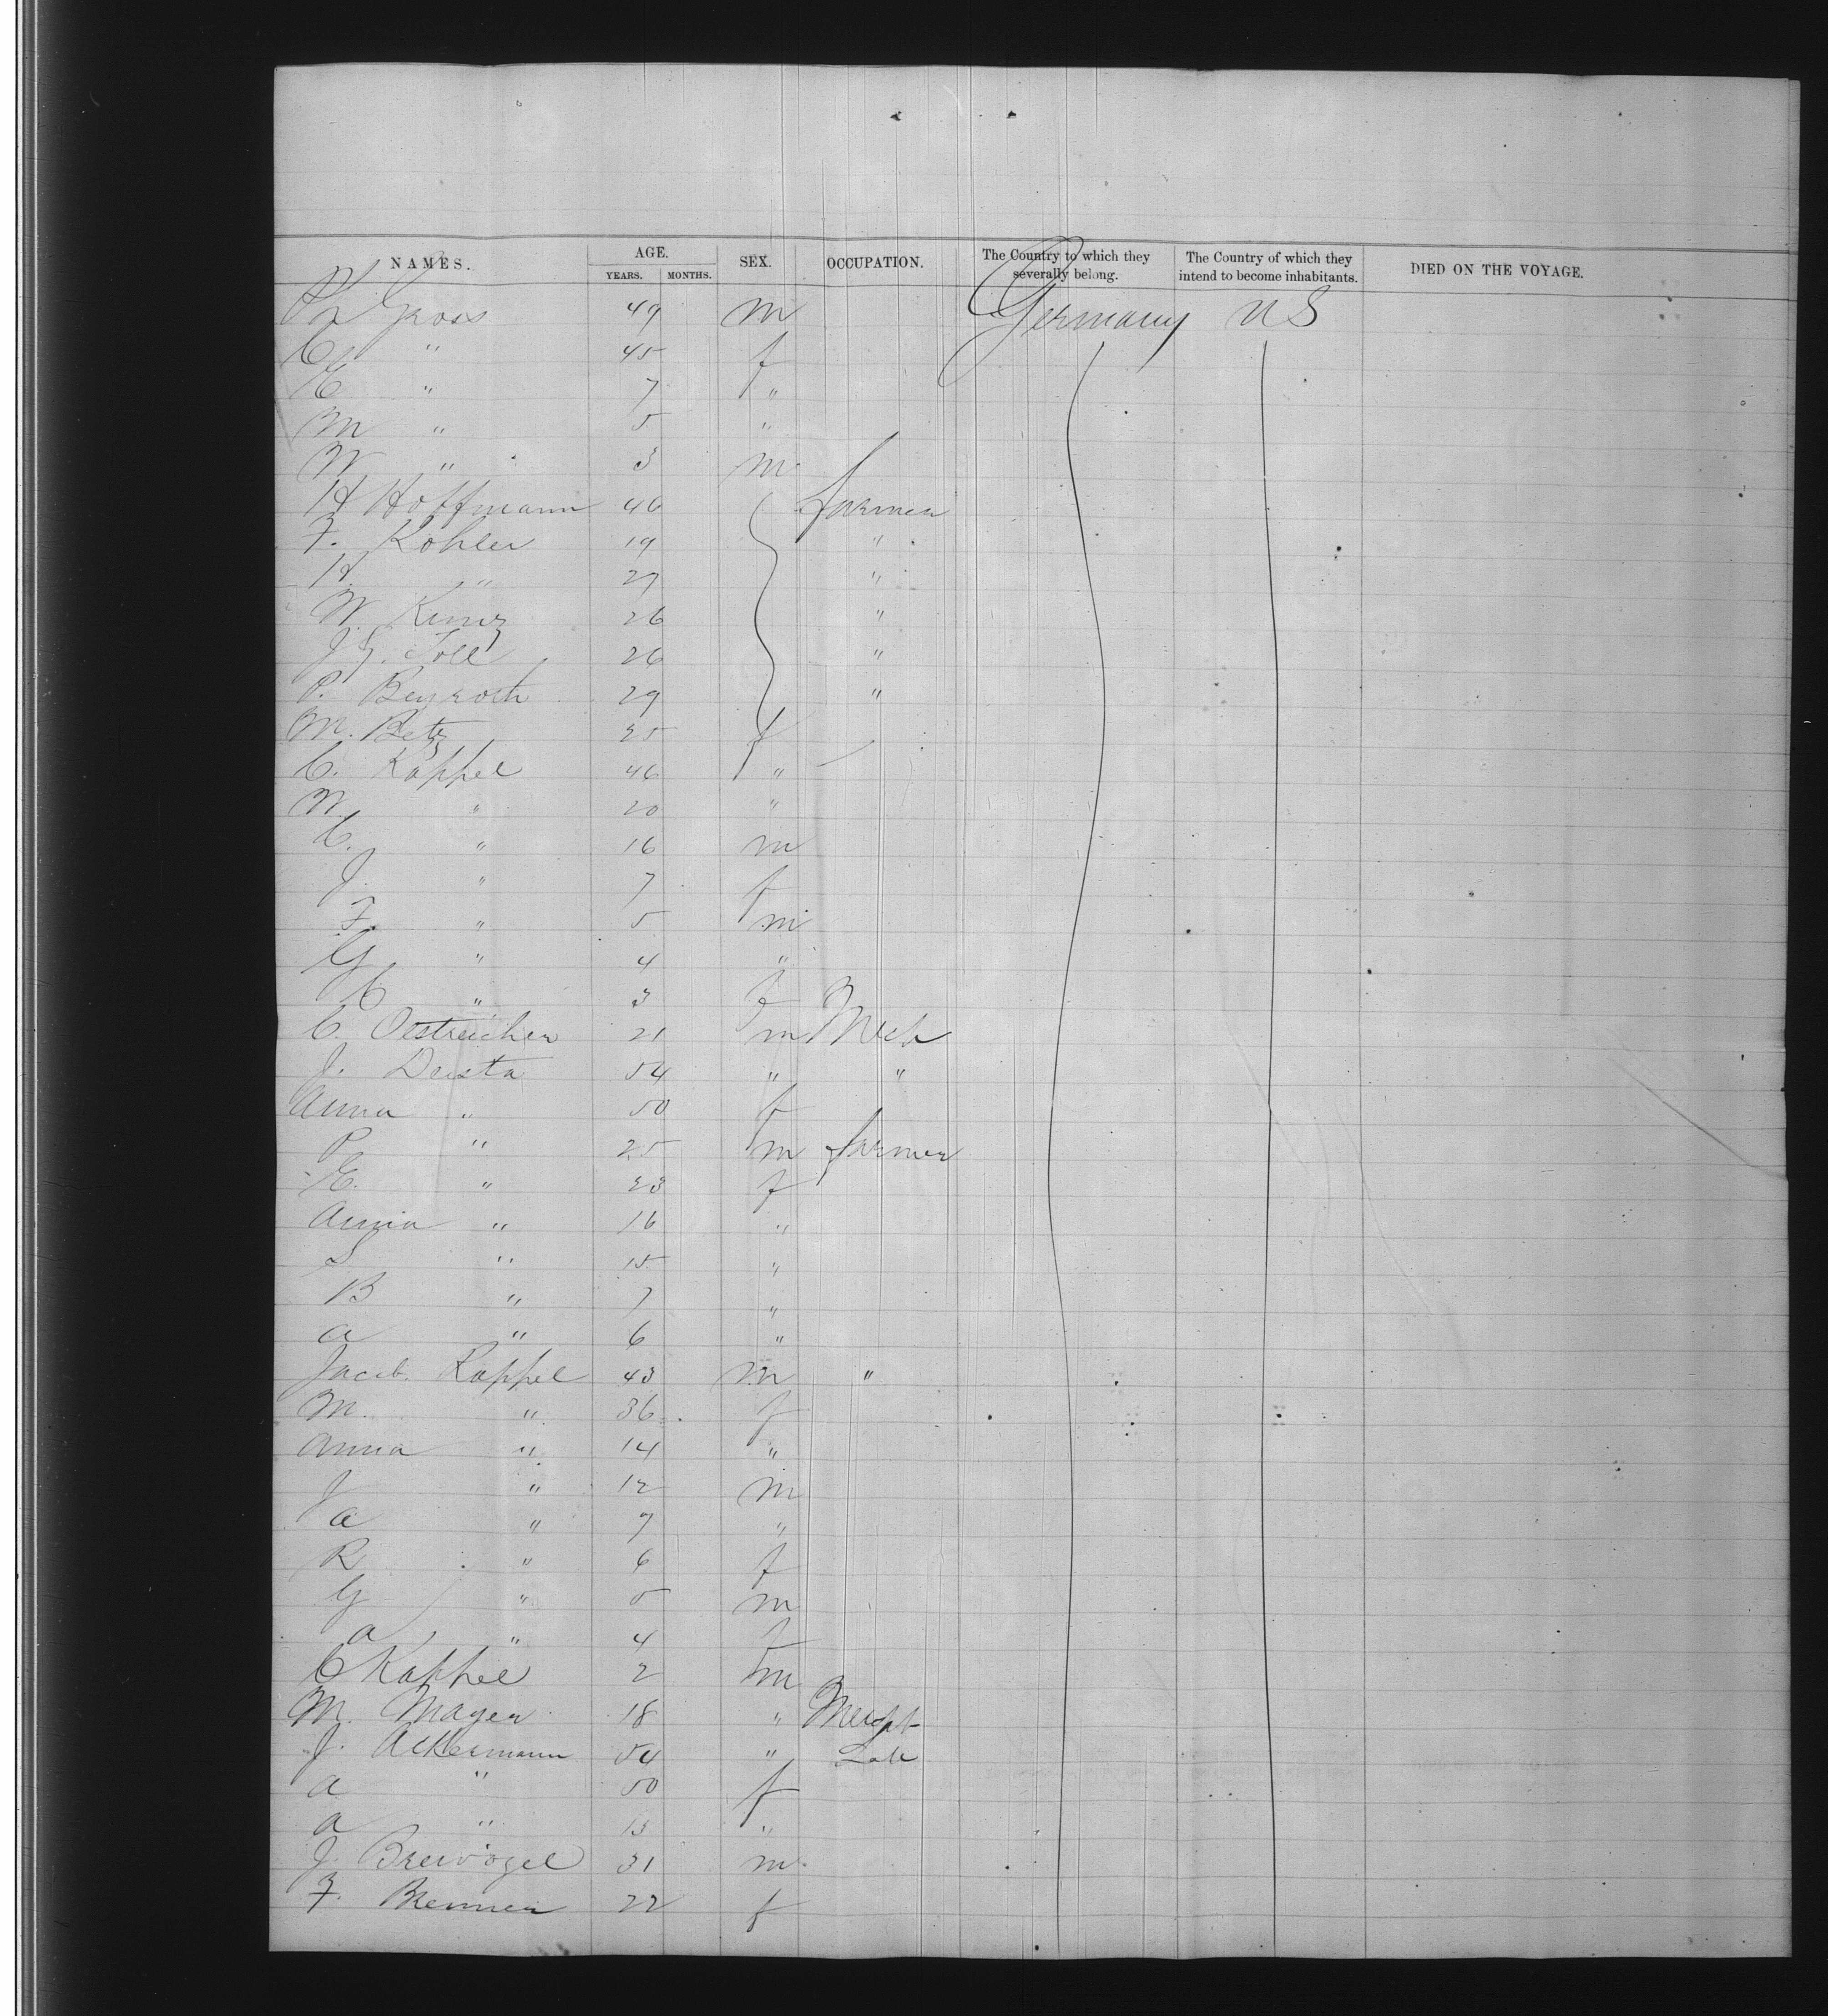 NAMES. AGE. SEX. OCCUPATION. The Country to which they severally belong. The Country of which they intend to become inhabitants. DIED ON THE VOYAGE.
YEARS. MONTHS.
Gross 49 m Germany U S
C " 45 f
C " 7 "
M " 5 "
W " 3 m
H Hoffmann 46 farmer
F. Kohler 19 "
H. " 27 "
W. Kunz 26 "
J G. Toll 26 "
P. Beyroth 29 "
M. Betz 25 f
C. Kappel 46 "
W " 20 "
C. " 16 m
J. " 7 f
F. " 5 m
G " 4 "
C " 3 f
C. Oestreicher 21 m Mech
J. Deista 54 " "
Anna " 50 f
P " 25 m farmer
E. " 23 f
Anna " 16 "
S " 15 "
B " 7 "
A " 6 "
Jacob. Kappel 43 m "
M. " 36 f
Anna " 14 "
J " 12 m
A " 9 "
R " 6 f
G " 5 m
A " 4 f
C Kappel 2 m
M. Mayer 18 "
J. Ackermann 54 " Lab
A " 50 f
A " 13 "
J. Breivogel 31 m
F. Brenner 22 f